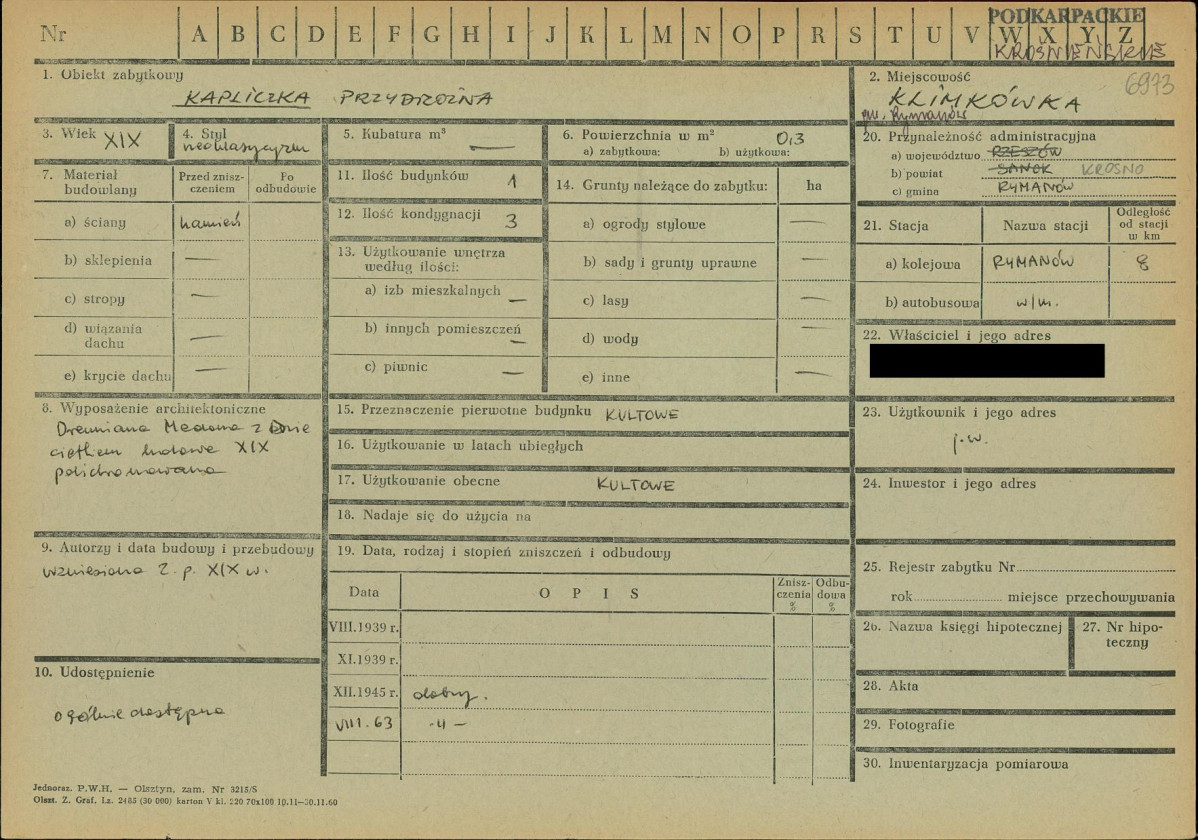 Nr A B C D E F G H I J K L M N O P R S T U V W X Y Z
PODKARPACKIE
KROŚNIEŃSKIE
1. Obiekt zabytkowy
KAPLICZKA PRZYDROŻNA
2. Miejscowość
6973
KLIMKÓWKA
gm. Rymanów
3. Wiek XIX
4. Styl
neoklasycyzm
5. Kubatura m³
—
6. Powierzchnia w m² 0,3
a) zabytkowa: b) użytkowa:
7. Materiał budowlany
Przed zniszczeniem
Po odbudowie
a) ściany kamień
b) sklepienia —
c) stropy —
d) wiązania dachu —
e) krycie dachu —
8. Wyposażenie architektoniczne
Drewniana Madonna z Dzie
ciątkiem ludowe XIX
polichromowana
9. Autorzy i data budowy i przebudowy
wzniesiona 2. p. XIX w.
10. Udostępnienie
ogólnie dostępna
11. Ilość budynków 1
12. Ilość kondygnacji 3
13. Użytkowanie wnętrza
według ilości:
a) izb mieszkalnych —
b) innych pomieszczeń —
c) piwnic —
14. Grunty należące do zabytku: ha
a) ogrody stylowe —
b) sady i grunty uprawne —
c) lasy —
d) wody —
e) inne —
15. Przeznaczenie pierwotne budynku KULTOWE
16. Użytkowanie w latach ubiegłych
17. Użytkowanie obecne KULTOWE
18. Nadaje się do użycia na
19. Data, rodzaj i stopień zniszczeń i odbudowy
Data OPIS Zniszczenia % Odbudowa %
VIII.1939 r.
XI.1939 r.
XII.1945 r. dobry.
VIII.63 -"-
20. Przynależność administracyjna
a) województwo RZESZÓW
b) powiat SANOK KROSNO
c) gmina RYMANÓW
21. Stacja Nazwa stacji Odległość od stacji w km
a) kolejowa RYMANÓW 8
b) autobusowa w/m.
22. Właściciel i jego adres
23. Użytkownik i jego adres
j.w.
24. Inwestor i jego adres
25. Rejestr zabytku Nr
rok miejsce przechowywania
26. Nazwa księgi hipotecznej
27. Nr hipoteczny
28. Akta
29. Fotografie
30. Inwentaryzacja pomiarowa
Jednoraz. P.W.H. — Olsztyn, zam. Nr 3215/S
Olszt. Z. Graf. Lz. 2485 (30 000) karton V kl. 220 70x100 10.11—30.11.60